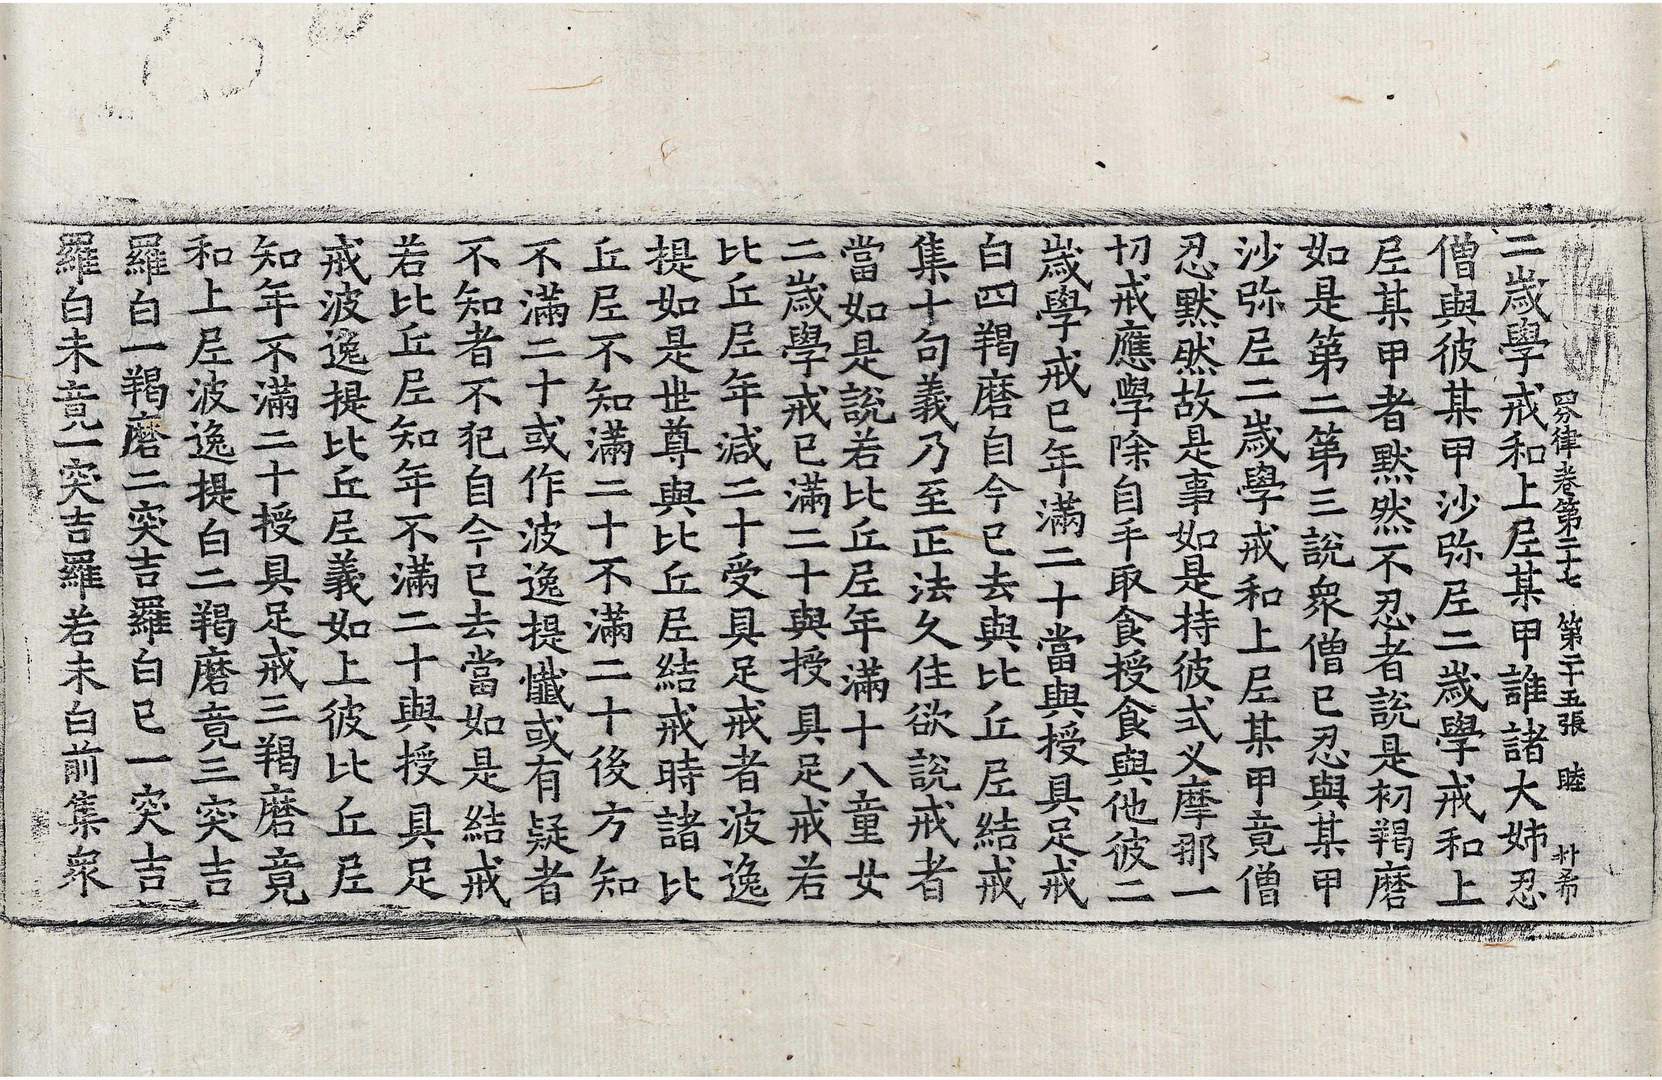 四分律卷第二十七 第二十五張 睦
二歲學戒和上尼某甲誰諸大姊忍
僧與彼某甲沙弥尼二歲學戒和上
尼某甲者默然不忍者說是初羯磨
如是第二第三說衆僧已忍與某甲
沙弥尼二歲學戒和上尼某甲竟僧
忍默然故是事如是持彼式叉摩那一
切戒應學除自手取食授食與他彼二
歲學戒已年滿二十當與授具足戒
白四羯磨自今已去與比丘尼結戒
集十句義乃至正法久住欲說戒者
當如是說若比丘尼年滿十八童女
二歲學戒已滿二十與授具足戒若
比丘尼年減二十受具足戒者波逸
提如是世尊與比丘尼結戒時諸比
丘尼不知滿二十不滿二十後方知
不滿二十或作波逸提懺或有疑者
不知者不犯自今已去當如是結戒
若比丘尼知年不滿二十與授具足
戒波逸提比丘尼義如上彼比丘尼
知年不滿二十授具足戒三羯磨竟
和上尼波逸提白二羯磨竟三突吉
羅白一羯磨二突吉羅白已一突吉
羅白未竟一突吉羅若未白前集衆